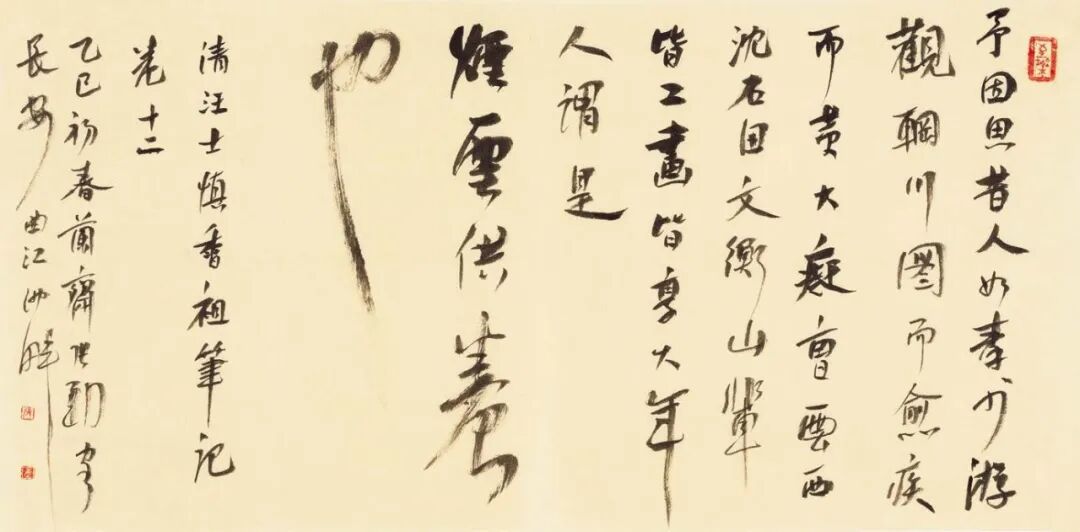 予因思昔人如秦少游
觀輞川圖而愈疾
而黄大癡曹雲西
沈石田文衡山輩
皆工畫皆享大年
人謂是
煙雲供養
也
清汪士慎香祖筆記
卷十二
乙巳初春蘭齋
長安曲江池畔